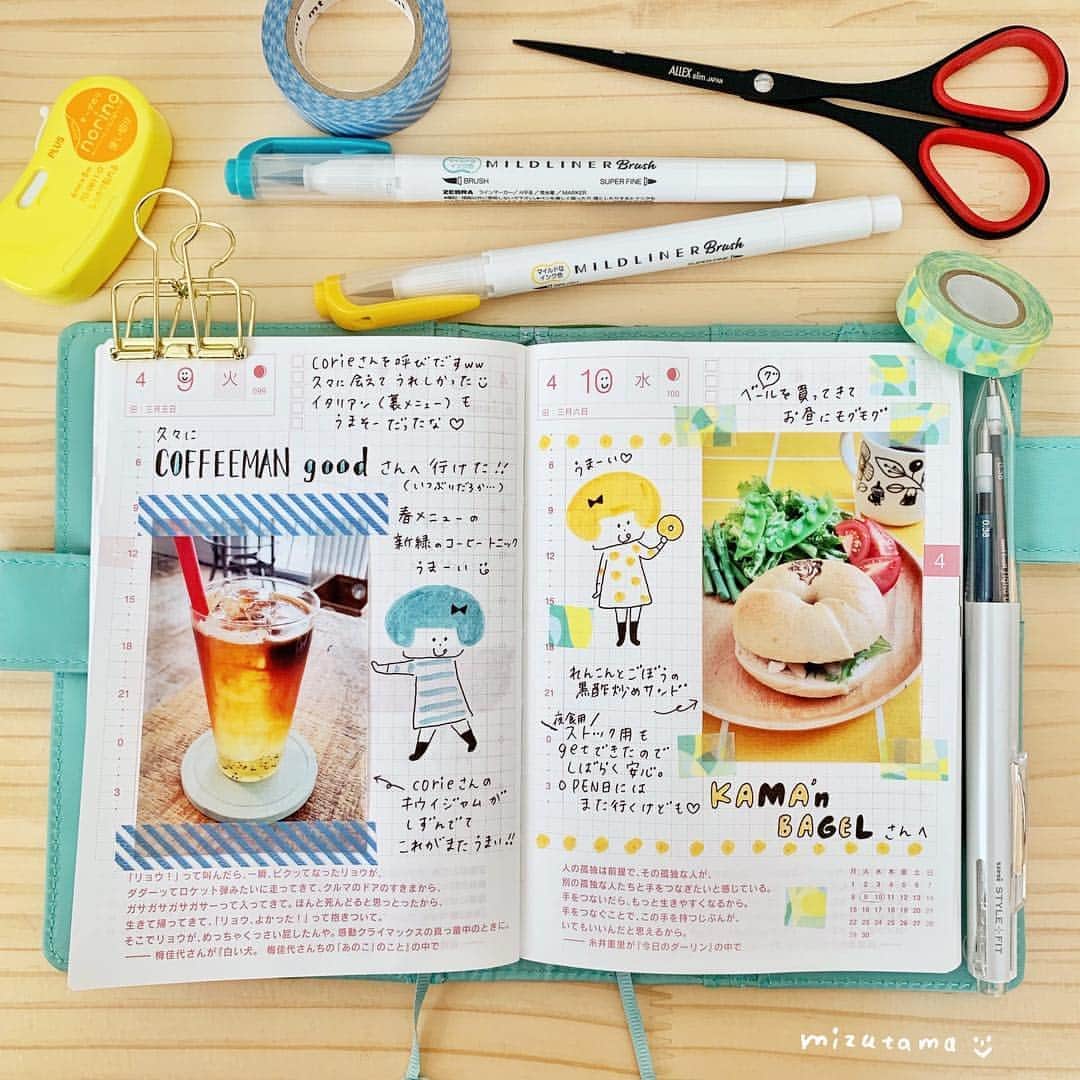 mt
norino
PLUS
ALLEX slim JAPAN
マイルドな
インク色
MILDLINER Brush
BRUSH
SUPER FINE
ZEBRA
マイルドな
インク色
MILDLINER Brush
SUPER FINE
4
9
火
099
旧:三月五日
corieさんを呼びだすww
久々に会えてうれしかった
イタリアン(裏メニュー)も
うまそーだったな♡
久々に
COFFEEMAN good さんへ行けた!!
(いつぶりだろか…)
春メニューの
新緑のコーヒートニック
うまーい
6
9
12
15
18
21
0
3
corieさんの
キウイジャムが
しずんでて
これがまたうまい!!
「リョウ!」って叫んだら、一瞬、ビクッてなったリョウが、
ダダーッてロケット弾みたいに走ってきて、クルマのドアのすきまから、
ガサガサガサガサーって入ってきて。ほんと死んどると思っとったから、
生きて帰ってきて、「リョウ、よかった!」って抱きついて。
そこでリョウが、めっちゃくっさい屁したんや。感動クライマックスの真っ最中のときに。
——梅佳代さんが『白い犬。 梅佳代さんちの「あのこ」のこと』の中で
4
10
水
100
旧:三月六日
ベーグルを買ってきて
お昼にモグモグ
うまーい♡
6
9
12
15
18
21
0
3
れんこんとごぼうの
黒酢炒めサンド
夜食用
ストック用も
getできたので
しばらく安心。
OPEN日には
また行くけども♡
KAMA'n
BAGEL さんへ
4
人の孤独は前提で、その孤独な人が、
別の孤独な人たちと手をつなぎたいと感じている。
手をつないだら、もっと生きやすくなるから。
手をつなぐことで、この手を持つじぶんが、
いてもいいんだと思えるから。
——糸井重里が『今日のダーリン』の中で
月 火 水 木 金 土 日
1 2 3 4 5 6 7
8 9 10 11 12 13 14
15 16 17 18 19 20 21
22 23 24 25 26 27 28
29 30
0.38
uni
STYLE FIT
mizutama